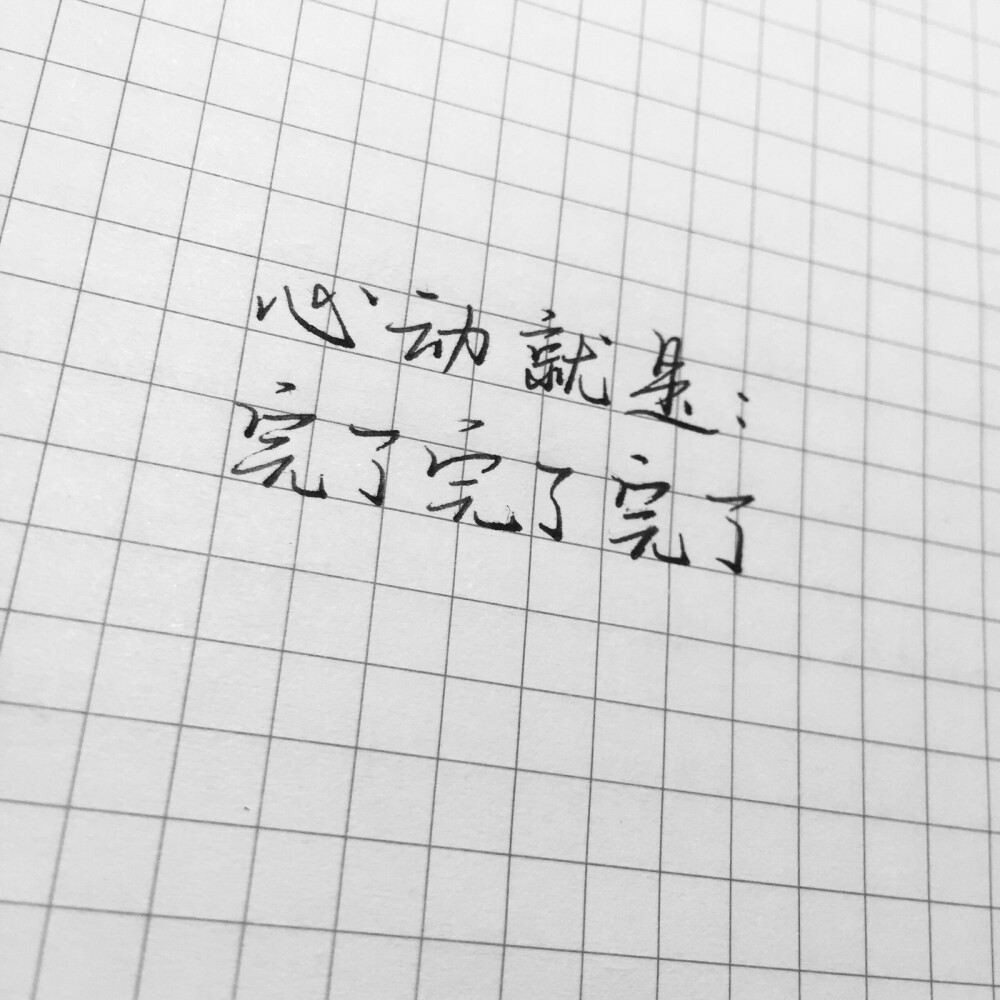 心动就是：
完了完了完了